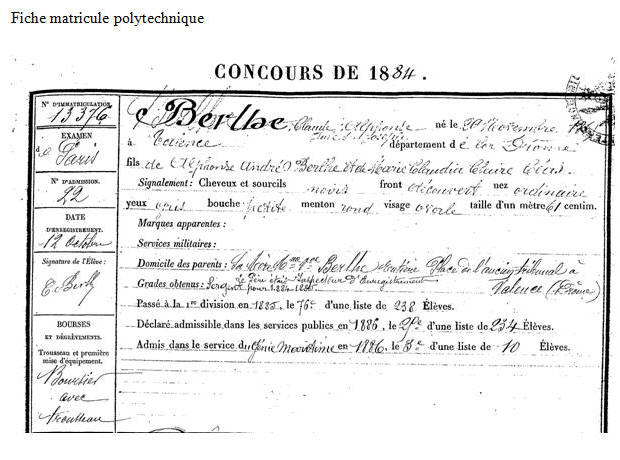 Fiche matricule polytechnique
CONCOURS DE 1884.
N° D'IMMATRICULATION.
13376
EXAMEN
de Paris
N° D'ADMISSION.
22
DATE
D'ENREGISTREMENT.
12 octobre
Signature de l'Élève :
BOURSES
ET DÉGRÈVEMENTS.
Trousseau et première
mise d'équipement.
Boursier
avec
trousseau
Berthe, Claude Alphonse né le 30 novembre
à Valence département d e la Drôme
fils de Alphonse André Berthe et de Marie Claudia
Signalement : Cheveux et sourcils noirs front découvert nez ordinaire
yeux gris bouche petite menton rond visage ovale taille d'un mètre 61 centim.
Marques apparentes :
Services militaires :
Domicile des parents : Sa Mère Mme Vve Berthe Place de l'ancien tribunal à
Le Père était Inspecteur d'Enregistrement
Valence (Drôme)
Grades obtenus : Sergent pour 1884-1885
Passé à la 1re division en 1885, le 76e d'une liste de 238 Élèves.
Déclaré admissible dans les services publics en 1886, le d'une liste de 234 Élèves.
Admis dans le service du Génie Maritime en 1886, le 8e d'une liste de 10 Élèves.